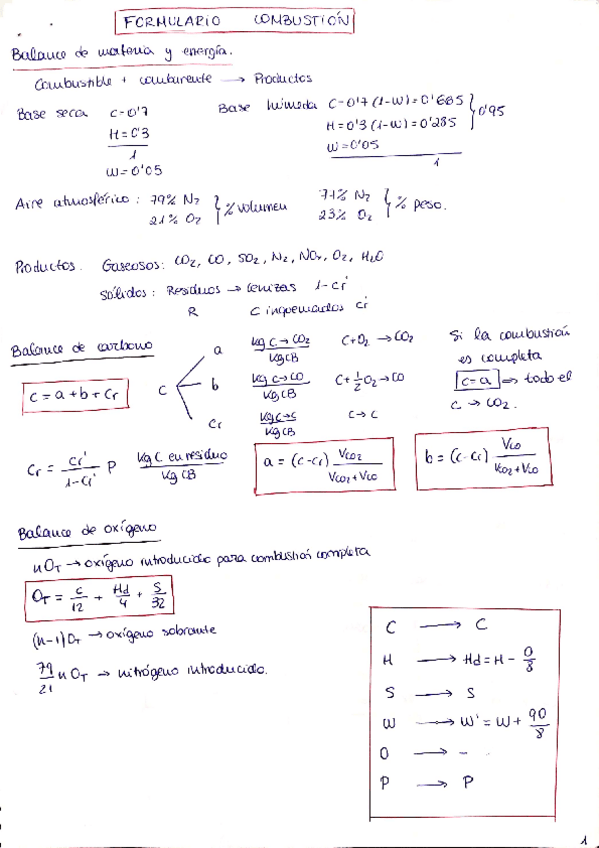 FORMULARIO COMBUSTIÓN
Balance de materia y energía.
Combustible + comburente → Productos
Base seca C-0'7
H=0'3
1
W=0'05
Base húmeda C-0'7 (1-W)=0'665
H=0'3 (1-W)=0'285 } 0'95
W=0'05
1
Aire atmosférico: 79% N₂ 21% O₂ } % volumen 77% N₂ 23% O₂ } % peso.
Productos. Gaseosos: CO₂, CO, SO₂, N₂, NOx, O₂, H₂O
Sólidos: Residuos → cenizas 1-Cr'
R C inquemados Cr'
Balance de carbono
C = a+b+Cr
C
a Kg C→CO₂/KgCB C+O₂ → CO₂
b Kg C→CO/KgCB C+½O₂→CO
Cr Kg C→C/KgCB C→C
Si la combustión
es completa
C=a ⇒ todo el
C → CO₂.
Cr = Cr'/(1-Cr') P Kg C en residuo/KgCB
a = (C-Cr) VCO₂/(VCO₂+VCO)
b = (C-Cr) VCO/(VCO₂+VCO)
Balance de oxígeno
nOT → oxígeno introducido para combustión completa
OT = C/12 + Hd/4 + S/32
(n-1)OT → oxígeno sobrante
79/21 n OT → nitrógeno introducido.
C → C
H → Hd = H - O/8
S → S
W → W' = W + 9O/8
O → -
P → P
1